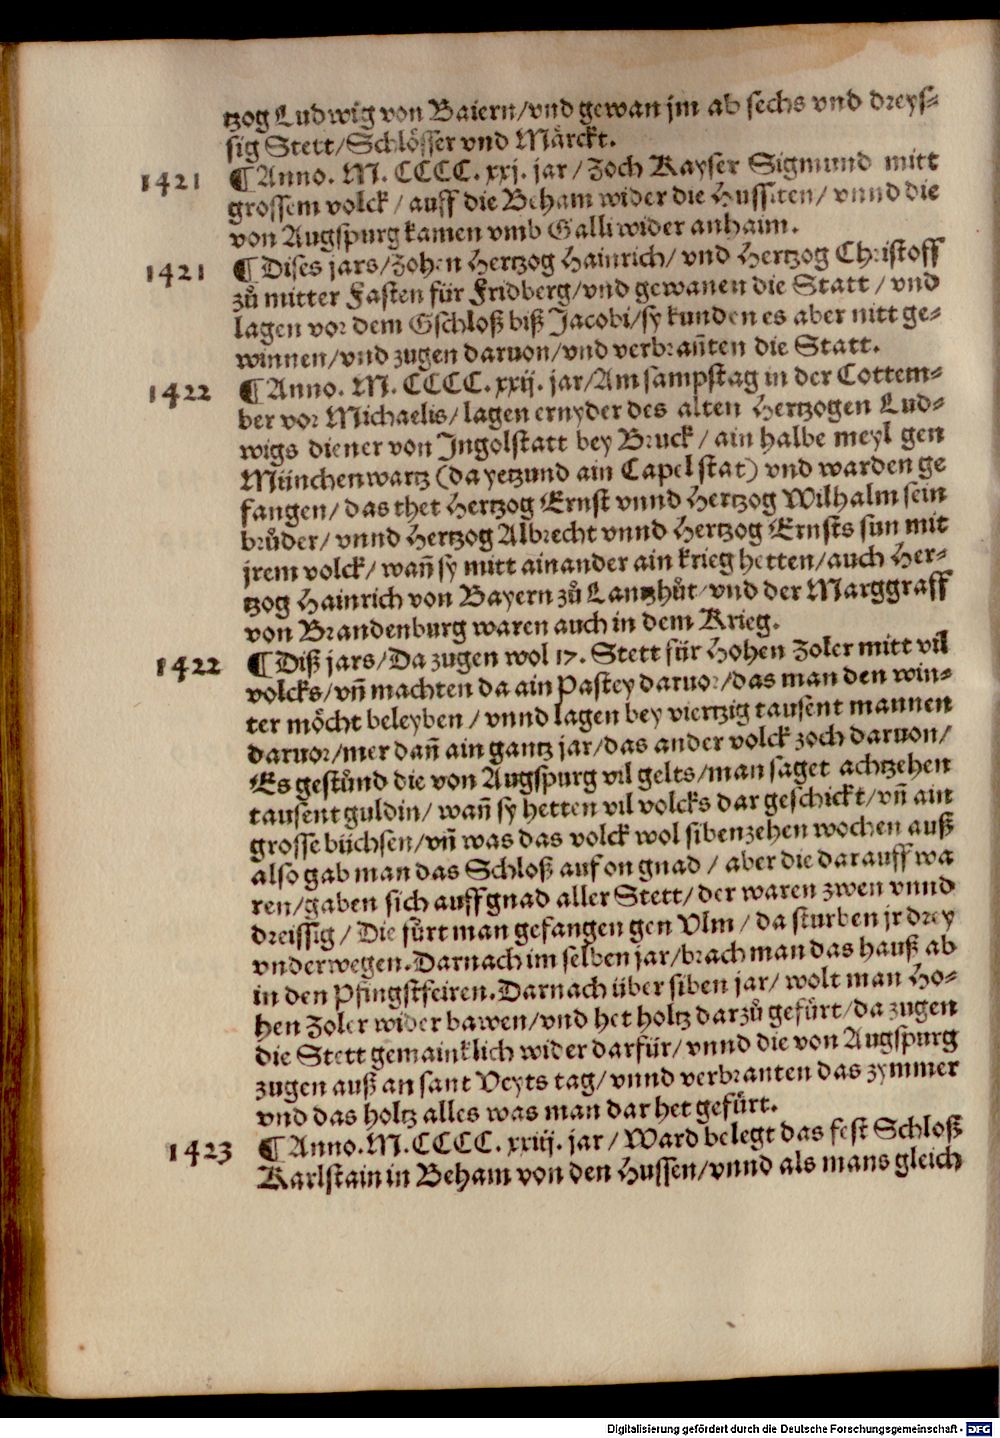 tzog Ludwig von Baiern/vnd gewan jm ab sechs vnd dreys-
sig Stett/Schlösser vnd Märckt.
1421 ¶ Anno. M. CCCC. xxj. jar / Zoch Kayser Sigmund mitt
grossem volck / auff die Beham wider die Hussiten/ vnnd die
von Augspurg kamen vmb Galli wider anhaim.
1421 ¶ Dises jars/Zohen Hertzog Hainrich/ vnd Hertzog Christoff
zů mitter Fasten für Fridberg/vnd gewanen die Statt / vnd
lagen vor dem Gschloß biß Jacobi/sy kunden es aber nitt ge-
winnen/vnd zugen daruon/vnd verbrañten die Statt.
1422 ¶ Anno. M. CCCC. xxij. jar/Am sampstag in der Cottem-
ber vor Michaelis/ lagen ernyder des alten Hertzogen Lud-
wigs diener von Ingolstatt bey Bruck / ain halbe meyl gen
Münchenwartz (da yetzund ain Capel stat) vnd warden ge
fangen/ das thet Hertzog Ernst vnnd Hertzog Wilhalm sein
brůder/ vnnd Hertzog Albrecht vnnd Hertzog Ernsts sun mit
jrem volck/ wañ sy mitt ainander ain krieg hetten/auch Her-
tzog Hainrich von Bayern zů Lantzhůt/vnd der Marggraff
von Brandenburg waren auch in dem Krieg.
1422 ¶ Diß jars/Da zugen wol 17. Stett für Hohen Zoler mitt vil
volcks/vñ machten da ain Pastey daruor/das man den win-
ter möcht beleyben / vnnd lagen bey viertzig tausent mannen
daruor/mer dañ ain gantz jar/das ander volck zoch daruon/
Es gestůnd die von Augspurg vil gelts/man saget achtzehen
tausent guldin/ wañ sy hetten vil volcks dar geschickt/vñ ain
grosse büchsen/vñ was das volck wol sibenzehen wochen auß
also gab man das Schloß auf on gnad / aber die darauff wa
ren/gaben sich auff gnad aller Stett/der waren zwen vnnd
dreissig / Die fůrt man gefangen gen Vlm / da sturben jr drey
vnderwegen. Darnach im selben jar/brach man das hauß ab
in den Pfingstfeiren. Darnach über siben jar/ wolt man Ho-
hen Zoler wider bawen/vnd het holtz darzů gefürt/da zugen
die Stett gemainklich wider darfür/ vnnd die von Augspurg
zugen auß an sant Veyts tag/ vnnd verbranten das zymmer
vnd das holtz alles was man dar het gefürt.
1423 ¶ Anno. M. CCCC. xxiij. jar / Ward belegt das fest Schloß
Karlstain in Beham von den Hussen/vnnd als mans gleich
Digitalisierung gefördert durch die Deutsche Forschungsgemeinschaft - DFG